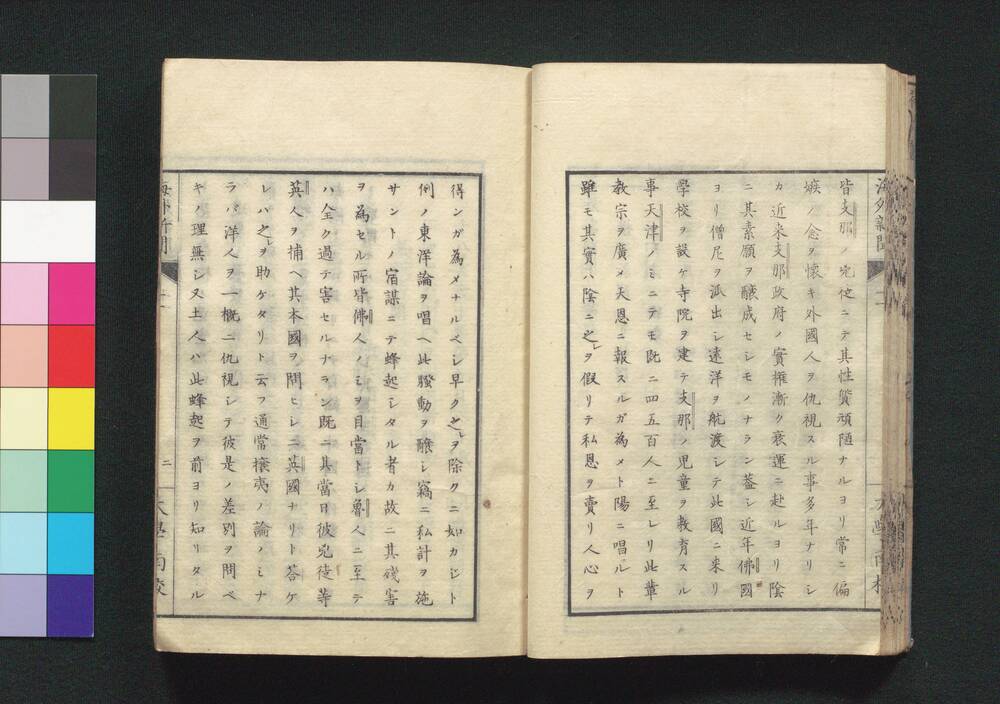 海外新聞
大學南校
皆支那ノ兇徒ニテ其性質頑陋ナルヨリ常ニ偏
嫉ノ念ヲ懷キ外國人ヲ仇視スル事多年ナリシ
カ近来支那政府ノ實権漸ク衰運ニ赴ルヨリ陰
ニ其素願ヲ醸成セシモノナラン葢シ近年佛國
ヨリ僧尼ヲ派出シ遠洋ヲ航渡シテ此國ニ来リ
學校ヲ設ケ寺院ヲ建テ支那ノ児童ヲ教育スル
事天津ノミニテモ既ニ四五百人ニ至レリ此輩
教宗ヲ廣メ天恩ニ報スルガ為メト陽ニ唱ルト
雖モ其實ハ陰ニ之レヲ假リテ私恩ヲ賣リ人心ヲ
得ンガ為メナルベシ早ク之レヲ除クニ如カシト
例ノ東洋論ヲ唱ヘ此騒動ヲ醸シ竊ニ私計ヲ施
サントノ宿謀ニテ蜂起シタル者カ故ニ其残害
ヲ為セル所皆佛人ノミヲ目當トシ魯人ニ至テ
ハ全ク過テ害セルナラン既ニ其當日彼兇徒等
英人ヲ捕ヘ其本國ヲ問ヒシニ英國ナリト答ケ
レバ之レヲ助ケタリト云フ通常攘夷ノ論ノミナ
ラバ洋人ヲ一概ニ仇視シテ彼是ノ差別ヲ問ベ
キノ理無シ又土人ハ此蜂起ヲ前ヨリ知リタル
海外新聞
二
大學南校